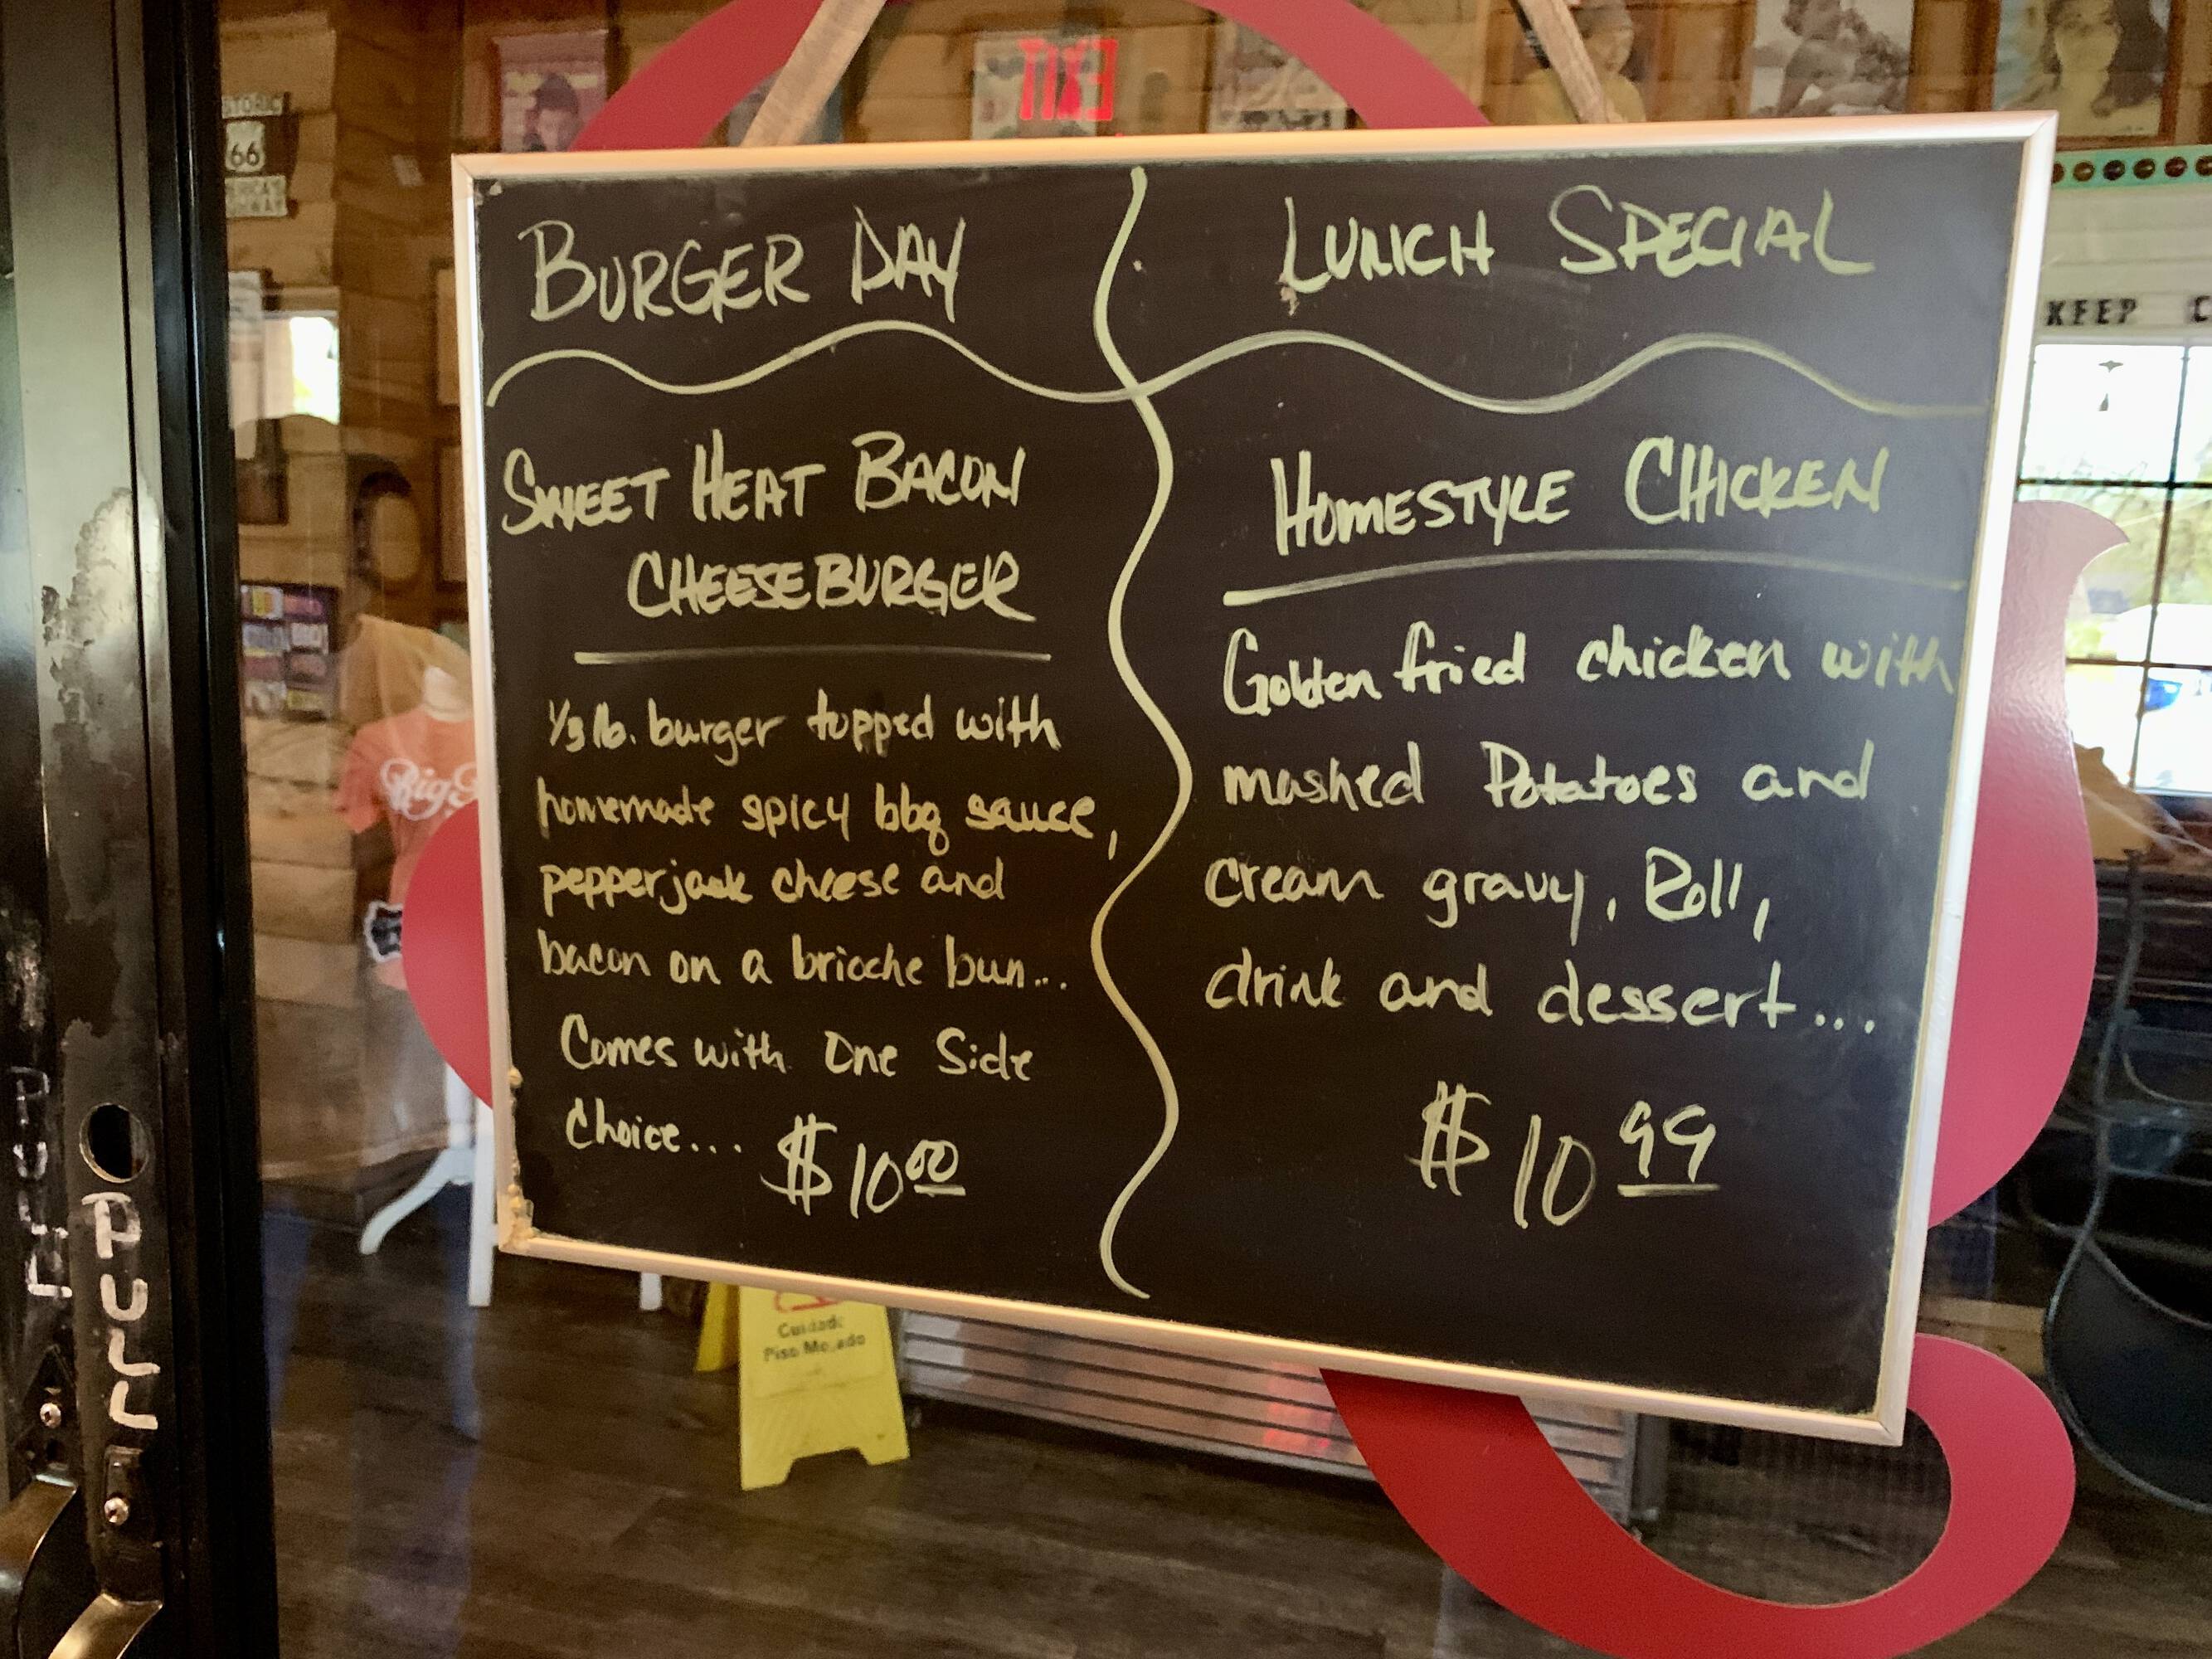 EXIT
66
KEEP
BURGER DAY
SWEET HEAT BACON
CHEESEBURGER
1/3 lb. burger topped with
homemade spicy bbq sauce,
pepperjack cheese and
bacon on a brioche bun...
Comes with One Side
Choice... $10.00
LUNCH SPECIAL
HOMESTYLE CHICKEN
Golden fried chicken with
mashed Potatoes and
cream gravy, Roll,
drink and dessert...
$10.99
Cuidado
Piso Mojado
PULL